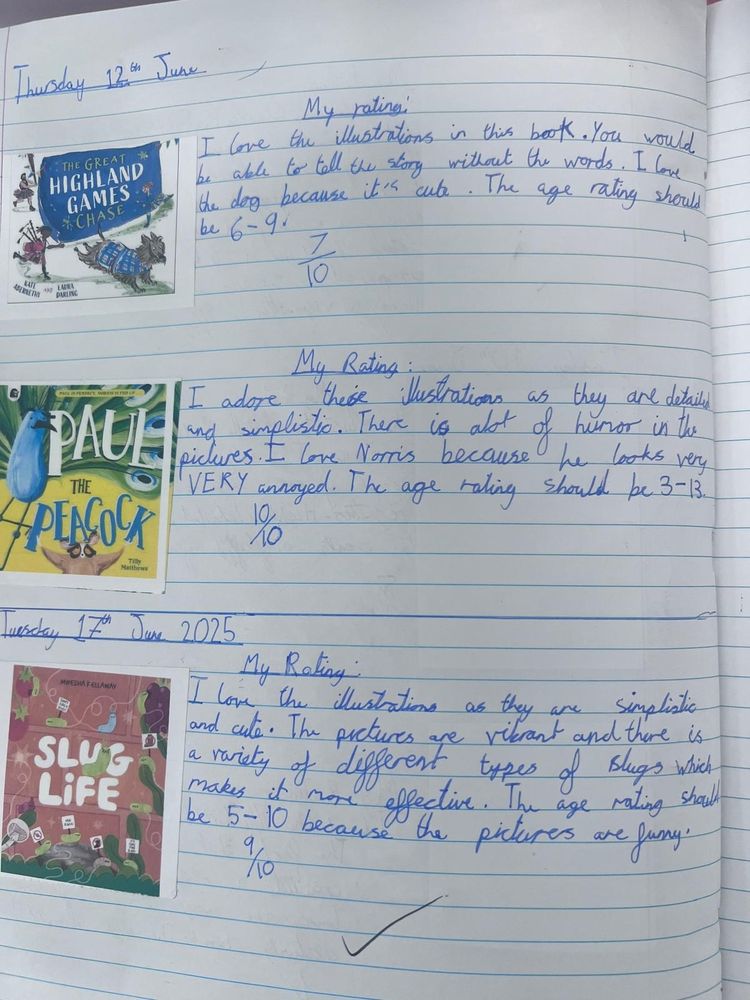 Thursday 12th June
My rating:
I love the illustrations in this book. You would
be able to tell the story without the words. I love
the dog because it's cute. The age rating should
be 6-9.
7/10
THE GREAT
HIGHLAND
GAMES
CHASE
KATE ABERNETHY AND LAURA DARLING
My Rating:
I adore these illustrations as they are detailed
and simplistic. There is alot of humor in the
pictures. I love Norris because he looks very
VERY annoyed. The age rating should be 3-13.
10/10
PAUL
THE
PEACOCK
Tilly
Matthews
Tuesday 17th June 2025
My Rating:
I love the illustrations as they are simplistic
and cute. The pictures are vibrant and there is
a variety of different types of slugs which
makes it more effective. The age rating should
be 5-10 because the pictures are funny.
9/10
SLUG
LiFE